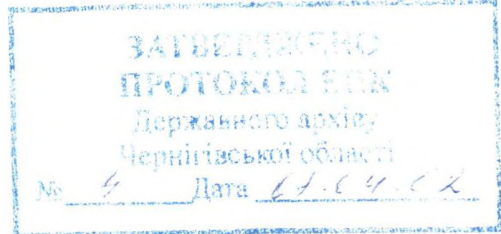 ЗАТВЕРДЖЕНО
ПРОТОКОЛ ЕПК
Державного архіву
Чернігівської області
№ 4 Дата